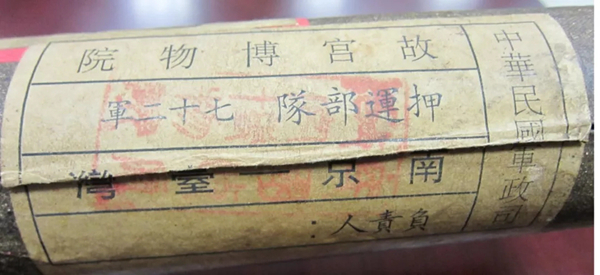 中華民國軍政司
故宮博物院
押運部隊 七十二軍
南京—臺灣
負責人: